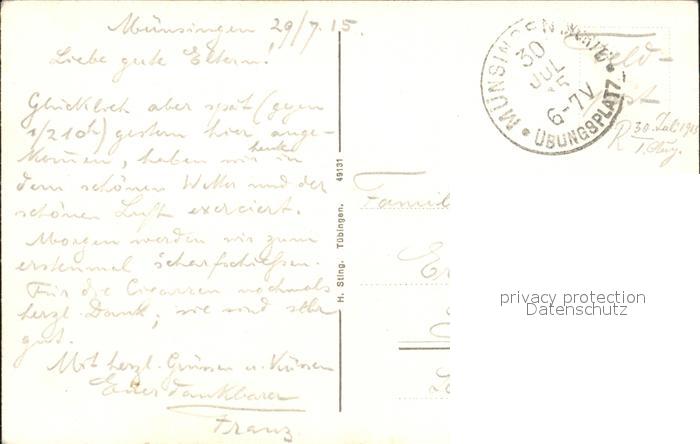 Münsingen 29/7.15.
Liebe gute Eltern!
Glücklich aber spät (gegen
1/2 10h) gestern hier ange-
kommen, haben wir heute in
dem schönen Wetter und der
schönen Luft exerciert.
Morgen werden wir zum
erstenmal scharfschießen.
Für die Cigarren nochmals
herzl. Dank, sie sind sehr
gut.
Mit herzl. Grüssen u. Küssen
Euer dankbarer
Franz
H. Sting, Tübingen. 49131
MÜNSINGEN
30
JUL
15
6-7V
ÜBUNGSPLATZ
Feld-
post
R 30. Juli 1915
1. Aug.
Famil
privacy protection
Datenschutz